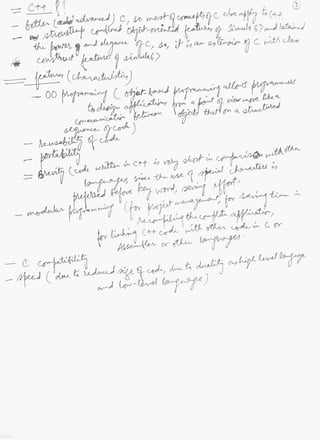 ②
= C++ ??
— Better (advanced) C, so most of concepts of C also apply to C++
— stroustrup combined Object-oriented features of Simula67 and retained
the power and elegance of C, so, it is an extension of C with class
construct feature of simula67
= features (characteristics)
— OO programming (object-based programming allows programmers
to design applications from a point of view more like a
communication between objects than on a structured
sequence of code)
— reusability of code
— portability
= Brevity (code written in C++ is very short in comparison with other
languages, since the use of special characters is
preferred before key word, saving effort.
— modular programming (for project management, for saving time in
recompiling the complete application,
for linking C++ code with other code in C or
Assembler or other languages.
— C compatibility
— speed (due to reduced size of code, due to duality as high level language
and low-level language)